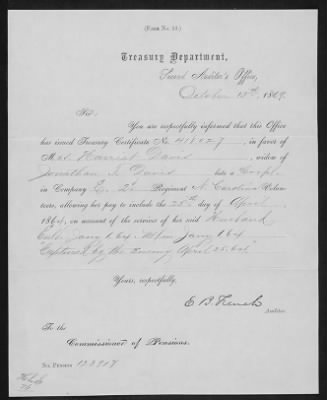 (Form No. 13.)
Treasury Department,
Second Auditor's Office,
October 13th, 1869.
Sir:
You are respectfully informed that this Office
has issued Treasury Certificate No. 418027, in favor of
Mrs. Harriet Davis, widow of
Jonathan L. Davis late a Corpl.
in Company G, 2d Regiment N. Carolina Volun-
teers, allowing her pay to include the 25th day of April
1864, on account of the service of her said Husband
Enld. Jany 1. 64 Jany 1 64
Captured by the Enemy April 25. 64"
Yours, respectfully,
E B French
Auditor.
To the
Commissioner of Pensions.
No. Pension